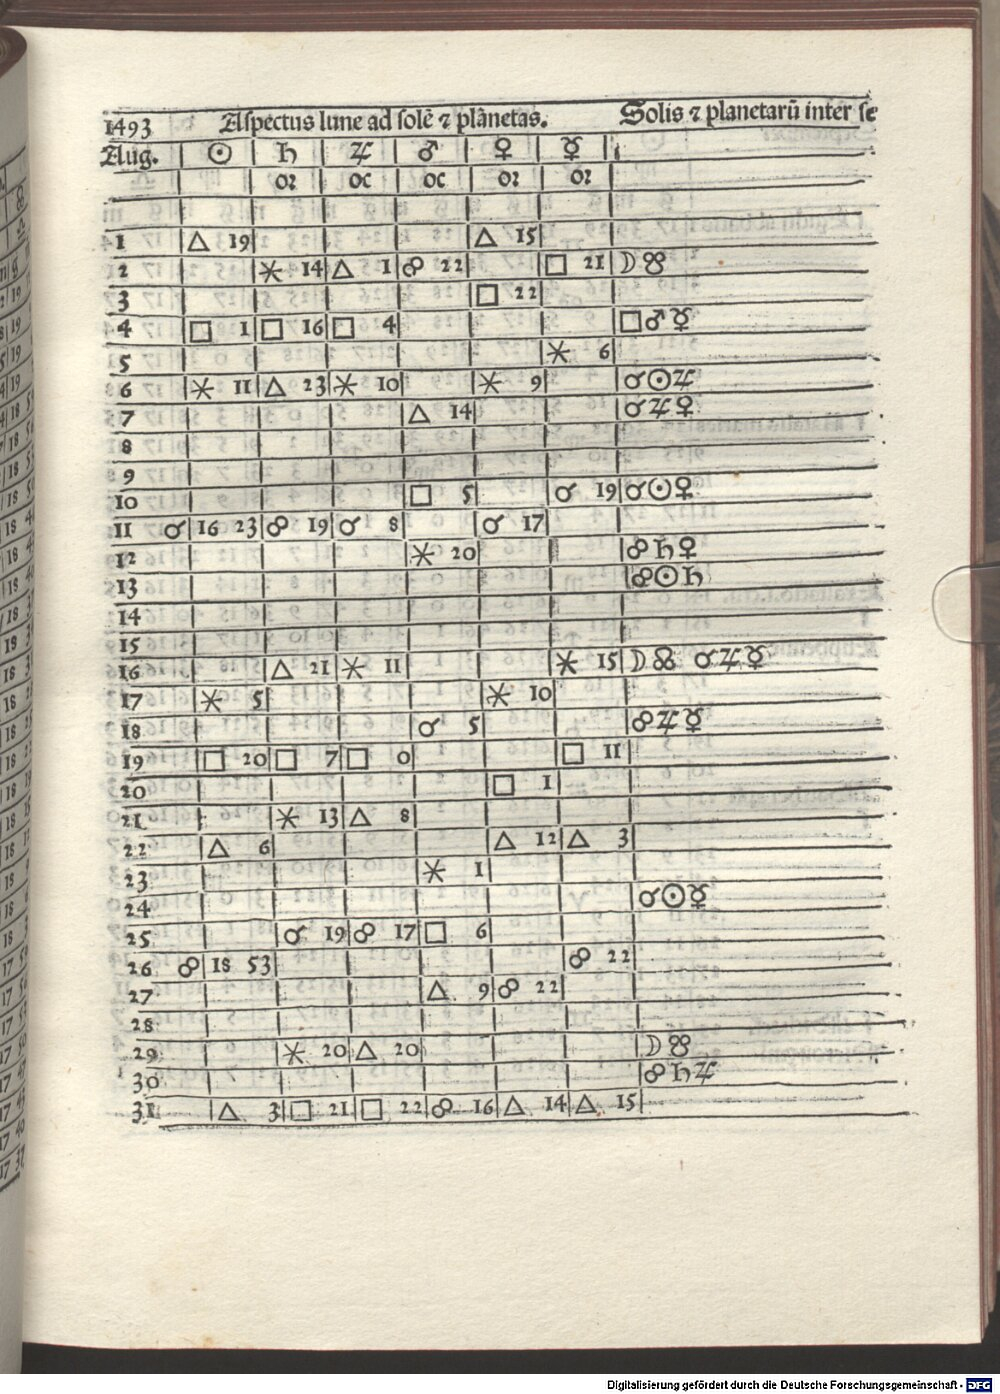 1493 Aspectus lune ad solē ⁊ planetas. Solis ⁊ planetarū inter se
Aug. ☉ ♄ ♃ ♂ ♀ ☿
oꝛ oc oc oꝛ oꝛ
1 △ 19 △ 15
2 ⚹ 14 △ 1 ☍ 22 □ 21 ☽ ☋
3 □ 22
4 □ 1 □ 16 □ 4 □ ♂ ☿
5 ⚹ 6
6 ⚹ 11 △ 23 ⚹ 10 ⚹ 9 ☌ ☉ ♃
7 △ 14 ☌ ♃ ♀
8
9
10 □ 5 ☌ 19 ☌ ☉ ♀
11 ☌ 16 23 ☍ 19 ☌ 8 ☌ 17
12 ⚹ 20 ☍ ♄ ♀
13 ☍ ☉ ♄
14
15
16 △ 21 ⚹ 11 ⚹ 15 ☽ ☋ ☌ ♃ ☿
17 ⚹ 5 ⚹ 10
18 ☌ 5 ☍ ♃ ☿
19 □ 20 □ 7 □ 0 □ 11
20 □ 1
21 ⚹ 13 △ 8
22 △ 6 △ 12 △ 3
23 ⚹ 1
24 ☌ ☉ ☿
25 ☌ 19 ☍ 17 □ 6
26 ☍ 18 53 ☍ 22
27 △ 9 ☍ 22
28
29 ⚹ 20 △ 20 ☽ ☋
30 ☍ ♄ ♃
31 △ 3 □ 21 □ 22 ☍ 16 △ 14 △ 15
Digitalisierung gefördert durch die Deutsche Forschungsgemeinschaft - DFG